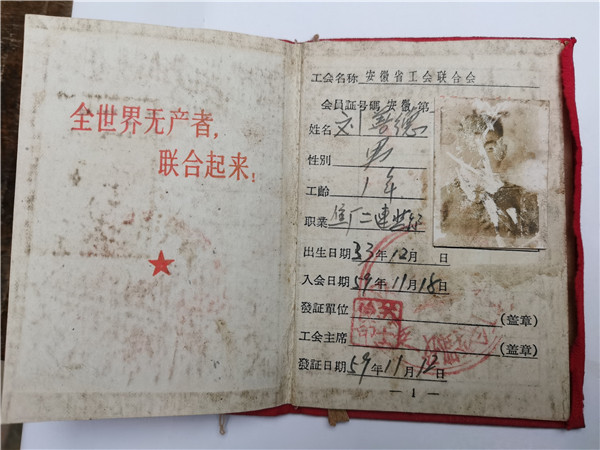 全世界无产者，
联合起来！
工会名称 安徽省工会联合会
会员証号碼 安徽 第
姓名 刘善德
性别 男
工龄 1年
职业
出生日期 33年12月 日
入会日期 59年11月18日
發証單位 (盖章)
工会主席 (盖章)
發証日期 59年11月12日
— 1 —